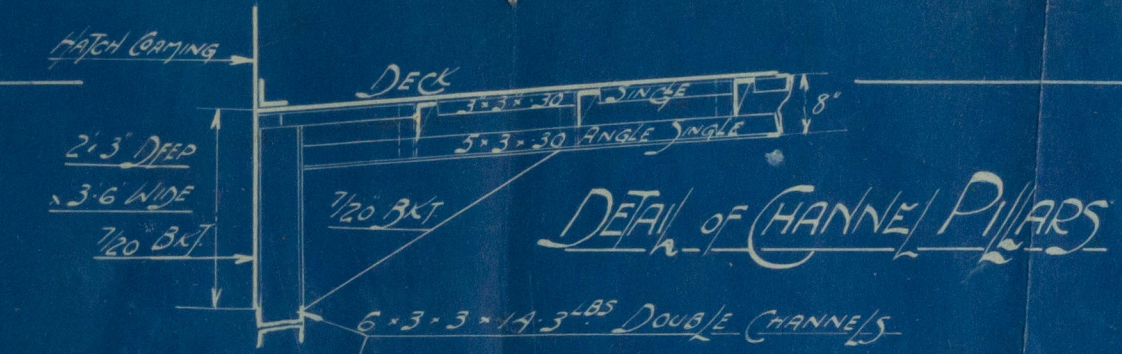 HATCH COAMING
DECK
3×3×.30 SINGLE
8"
5×3×.30 ANGLE SINGLE
2'.3" DEEP
× 3'.6" WIDE
7/20" BKT.
7/20" BKT.
DETAIL OF CHANNEL PILLARS
6×3×3×14.3LBS DOUBLE CHANNELS